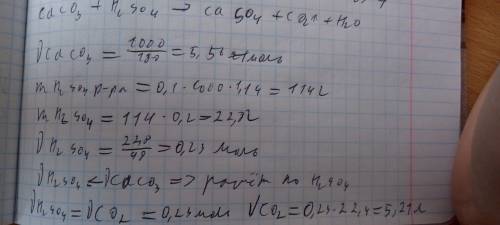 CaCO3 + H2SO4 → CaSO4 + CO2↑ + H2O
νCaCO3 = 1000/180 = 5,56 моль
m H2SO4 р-ра = 0,1·1000·1,14 = 114г
m H2SO4 = 114·0,2 = 22,8г
νH2SO4 = 22,8/98 = 0,23 моль
νH2SO4 < νCaCO3 => расчёт по H2SO4
νH2SO4 = νCO2 = 0,23 моль VCO2 = 0,23·22,4 = 5,21л